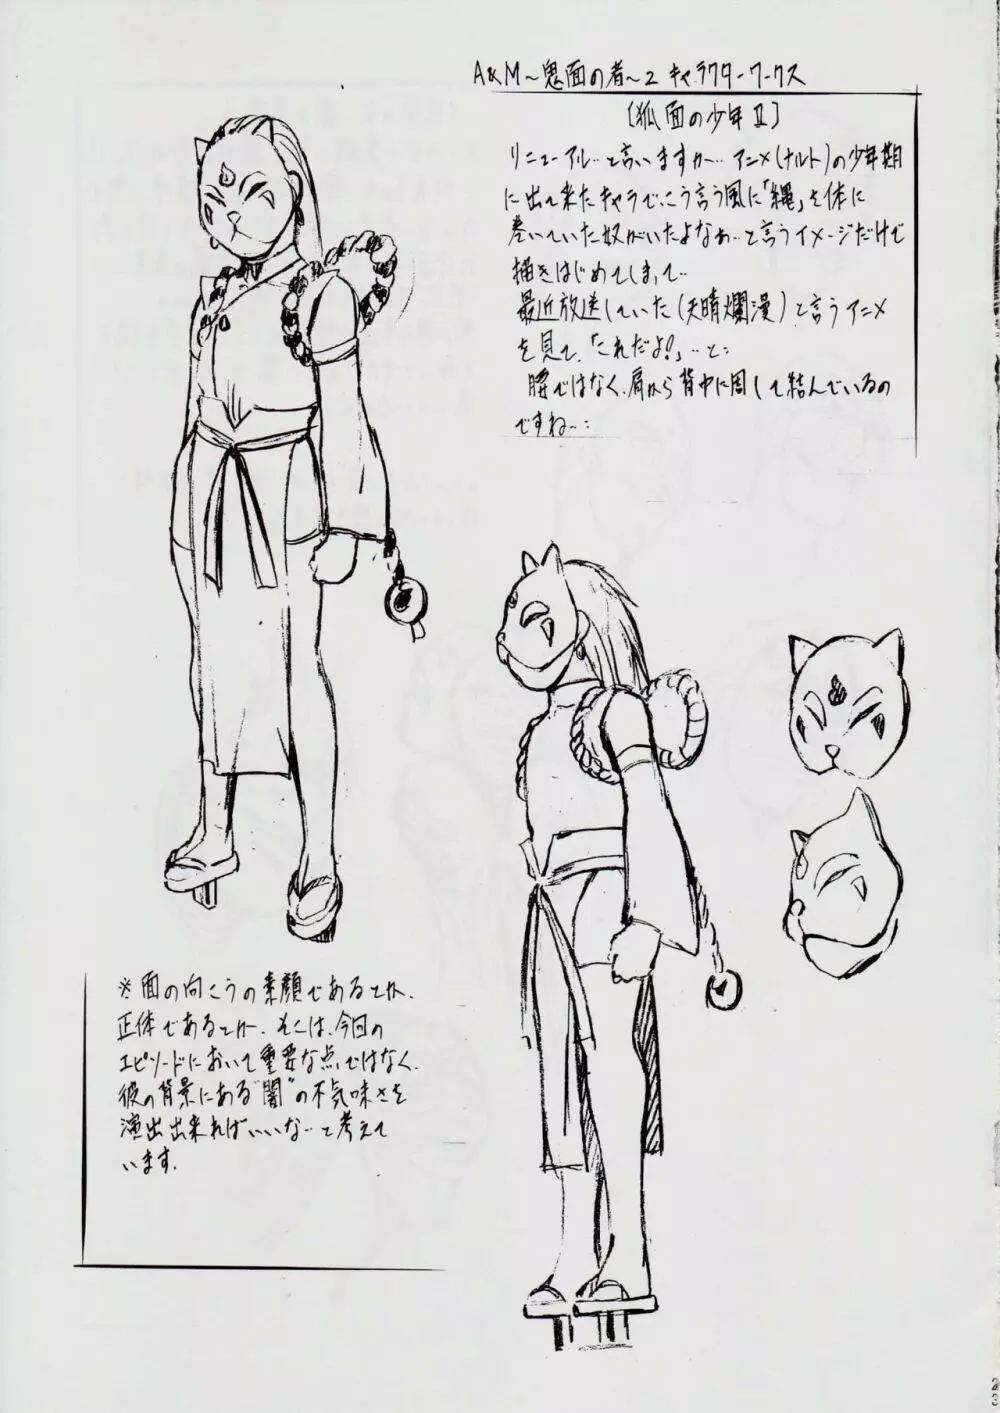 A&M～鬼面の者～2 キャラクターワークス
〔狐面の少年Ⅱ〕
リニューアル…と言いますか… アニメ(ナルト)の少年期
に出て来たキャラで、こう言う風に「縄」を体に
巻いていた奴がいたよなぁ…と言うイメージだけで
描きはじめてしまって…
最近放送していた(天晴爛漫)と言うアニメ
を見て、「これだよ!」…と:
腰ではなく、肩から背中に回して結んでいるの
ですね…:
※面の向こうの素顔であるとか、
正体であるとか、そこは、今回の
エピソードにおいて重要な点ではなく、
彼の背景にある"闇"の不気味さを
演出出来ればいいな…と考えて
います.
23